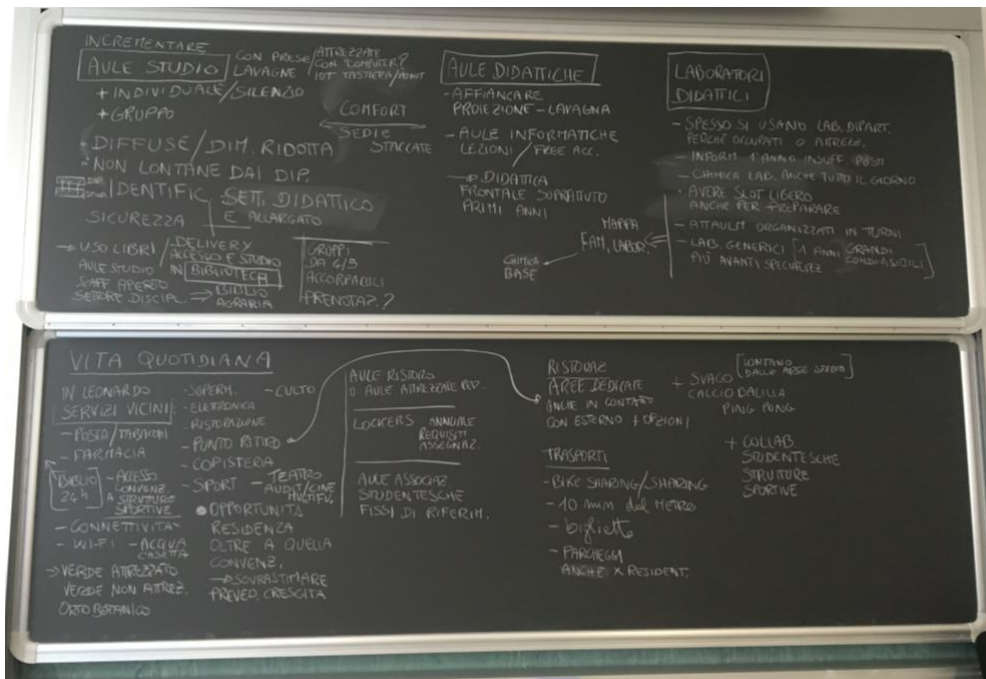 INCREMENTARE
AULE STUDIO
CON PRESE/
LAVAGNE
ATTREZZATE
CON COMPUTER?
IOT TASTIERA/
+ INDIVIDUALE/SILENZIO
+ GRUPPO
COMFORT
SEDIE
STACCATE
DIFFUSE/DIM. RIDOTTA
NON LONTANE DAI DIP.
IDENTIFIC
SETT. DIDATTICO
E ALLARGATO
SICUREZZA
→ USO LIBRI/
AULE STUDIO
SCAFF APERTO
SETTORE DISCIPL. →
DELIVERY
ACCESSO E STUDIO
IN BIBLIOTECA
BIBLIO
AGRARIA
GRUPPI
DA 4/5
ACCORPABILI
PRENOTAZ.?
AULE DIDATTICHE
- AFFIANCARE
PROIEZIONE - LAVAGNA
- AULE INFORMATICHE
LEZIONI / FREE ACC.
→ DIDATTICA
FRONTALE SOPRATUTO
PRIMI ANNI
MAPPA
FAM. LABOR.
CHIMICA
BASE
LABORATORI
DIDATTICI
- SPESSO SI USANO LAB. DIPART.
PERCHÉ OCCUPATI O ATTREZZ.
- INFORM 1° ANNO INSUFF. POSTI
- CHIMICA LAB. ANCHE TUTTO IL GIORNO
- AVERE SLOT LIBERO
ANCHE PER PREPARARE
- ATTUALM ORGANIZZATI IN TURNI
- LAB. GENERICI [1 ANNI GRANDI
CONDIVISIBILI]
PIÙ AVANTI SPECIALIZZ
VITA QUOTIDIANA
IN LEONARDO
SERVIZI VICINI:
- POSTA/TABACCHI
- FARMACIA
[BIBLIO
24h]
- ACCESSO
CONVENZ.
A STRUTTURE
SPORTIVE
- CONNETTIVITÀ
- WI-FI - ACQUA
CASETTA
→ VERDE ATTREZZATO
VERDE NON ATTREZ.
ORTO BOTANICO
- SUPERM. - CULTO
- ELETTRONICA
- RISTORAZIONE
- PUNTO RITIRO
- COPISTERIA
- SPORT - TEATRO
AUDIT/CINE
MULTIFU.
• OPPORTUNITÀ
RESIDENZA
OLTRE A QUELLA
CONVENZ.
→ SOVRASTIMARE
PREVED. CRESCITA
AULE RISTORO
O AULE ATTREZZATE
LOCKERS ANNUALE
REQUISITI
ASSEGNAZ.
AULE ASSOCIAZ.
STUDENTESCHE
FISSI DI RIFERIM.
RISTORAZ
AREE DEDICATE
ANCHE IN CONTATTO
CON ESTERNO + OPZIONI
TRASPORTI
- BIKE SHARING/SHARING
- 10 min dal METRO
- biglietto
- PARCHEGGI
ANCHE X RESIDENT.
+ SVAGO [LONTANO
DALLE AREE STUDIO]
CALCIO BALILLA
PING PONG
+ COLLAB.
STUDENTESCHE
STRUTTURE
SPORTIVE